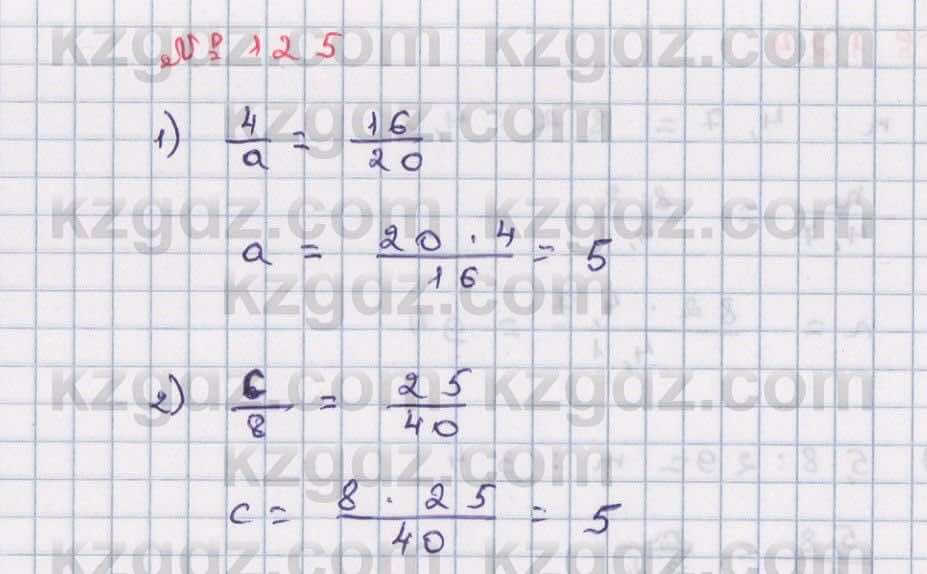 № 125
1) 4/a = 16/20
a = 20 · 4/16 = 5
2) 6/8 = 25/40
c = 8 · 25/40 = 5
kzgdz.com kzgdz.com
kzgdz.com
kzgdz.com kzgdz.com
kzgdz.com
kzgdz.com kzgdz.com
kzgdz.com
kzgdz.com kzgdz.com